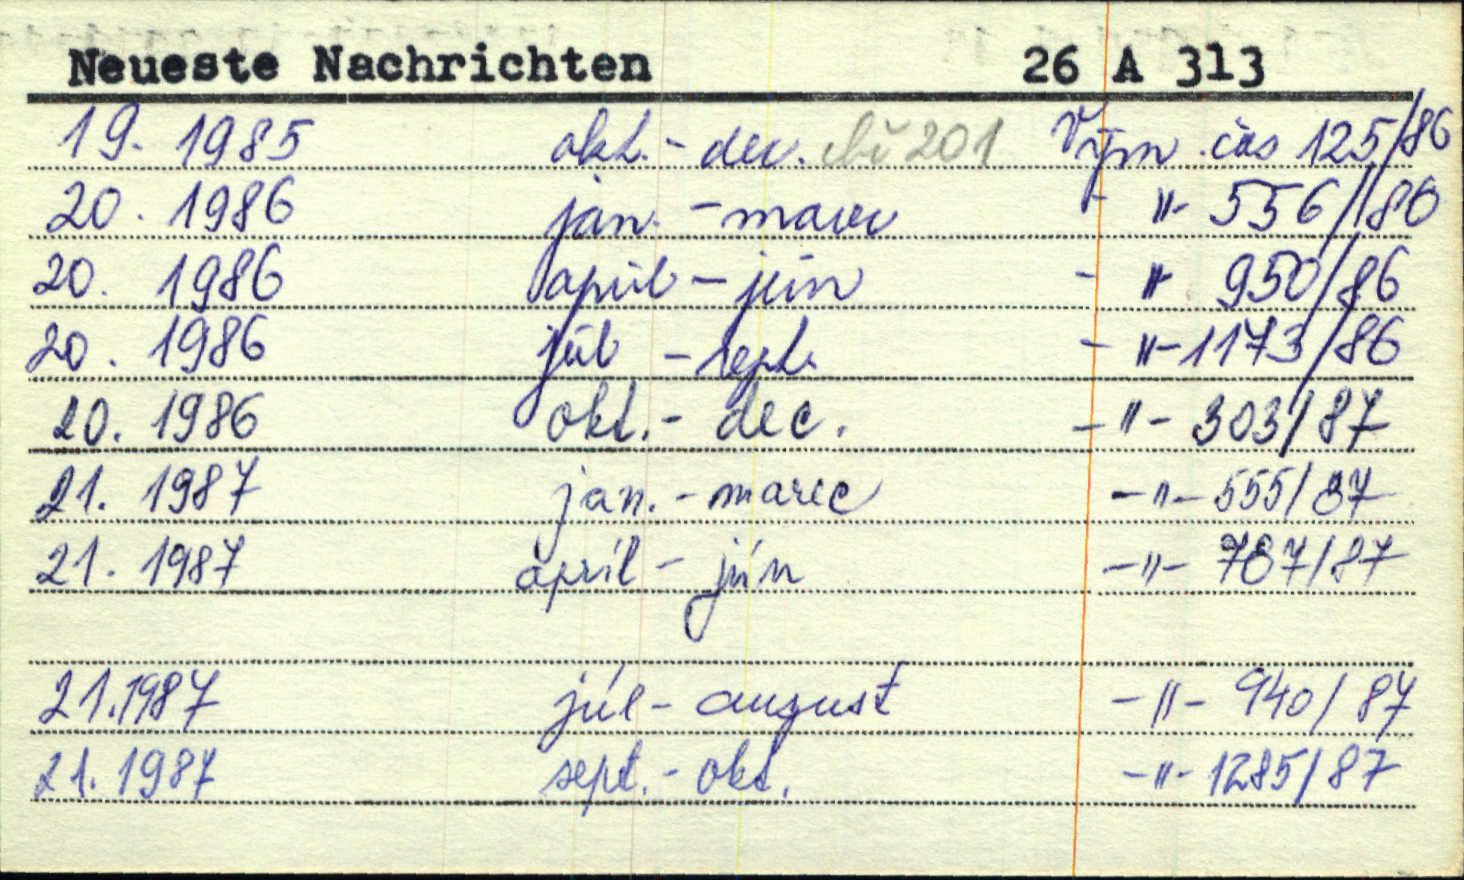 Neueste Nachrichten 26 A 313
19. 1985 okt. - dec. 201 Vým čas 125/86
20. 1986 jan. - marec - " - 556/86
20. 1986 apríl - jún - " 950/86
20. 1986 júl - sept. - " - 1173/86
20. 1986 okt. - dec. - " - 303/87
21. 1987 jan. - marec - " - 555/87
21. 1987 apríl - jún - " - 787/87
21. 1987 júl - august - " - 940/87
21. 1987 sept. - okt. - " - 1285/87